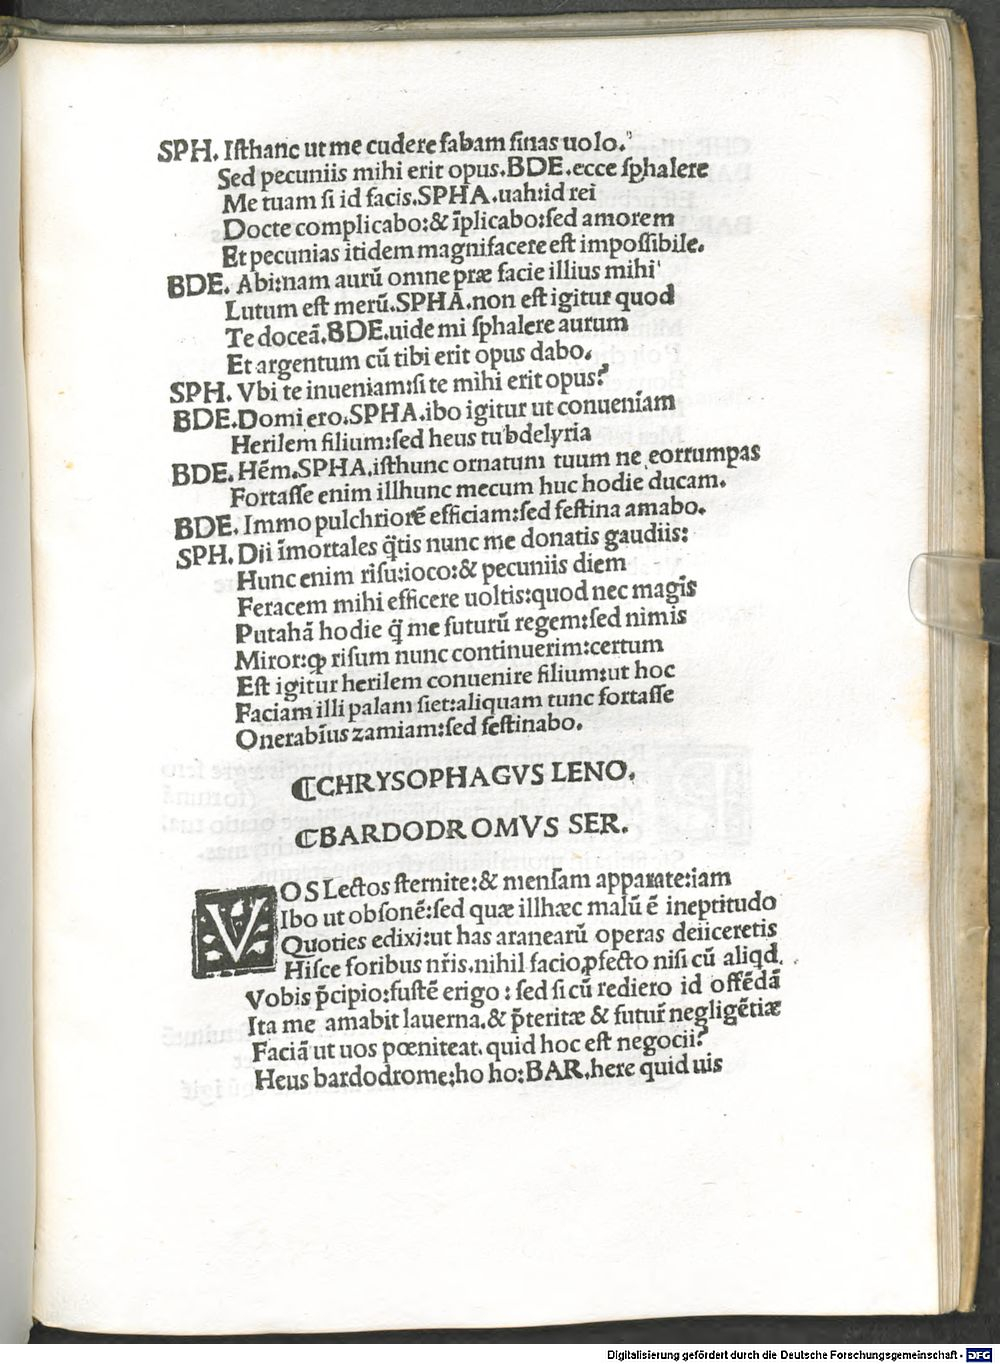 SPH. Iſthanc ut me cudere fabam ſinas uolo.
Sed pecuniis mihi erit opus.BDE.ecce ſphalere
Me tuam ſi id facis.SPHA.uah:id rei
Docte complicabo:& īplicabo:ſed amorem
Et pecunias itidem magnifacere eſt impoſſibile.
BDE. Abi:nam aurū omne præ facie illius mihi
Lutum eſt merū.SPHA.non eſt igitur quod
Te doceā.BDE.uide mi ſphalere aurum
Et argentum cū tibi erit opus dabo.
SPH. Vbi te inueniam:ſi te mihi erit opus?
BDE.Domi ero.SPHA.ibo igitur ut conueniam
Herilem filium:ſed heus tu bdelyria
BDE. Hēm.SPHA.iſthunc ornatum tuum ne corrumpas
Fortaſſe enim illhunc mecum huc hodie ducam.
BDE. Immo pulchriorē efficiam:ſed feſtina amabo.
SPH. Dii īmortales q̄tis nunc me donatis gaudiis:
Hunc enim riſu:ioco:& pecuniis diem
Feracem mihi efficere uoltis:quod nec magis
Putahā hodie q̄ me futurū regem:ſed nimis
Miror:ꝙ riſum nunc continuerim:certum
Eſt igitur herilem conuenire filium:ut hoc
Faciam illi palam ſiet:aliquam tunc fortaſſe
Onerabīus zamiam:ſed feſtinabo.
⸿CHRYSOPHAGVS LENO.
⸿BARDODROMVS SER.
VOS Lectos ſternite:& menſam apparate:iam
Ibo ut obſonē:ſed quæ illhæc malū ē ineptitudo
Quoties edixi:ut has aranearū operas deiiceretis
Hiſce foribus nr̄is.nihil facio ꝓfecto niſi cū aliqd.
Vobis p̄cipio:fuſtē erigo : ſed ſi cū rediero id offēdā
Ita me amabit lauerna.& p̄teritæ & futur̄ negligētiæ
Faciā ut uos pœniteat. quid hoc eſt negocii?
Heus bardodrome:ho ho:BAR.here quid uis
Digitalisierung gefördert durch die Deutsche Forschungsgemeinschaft - DFG